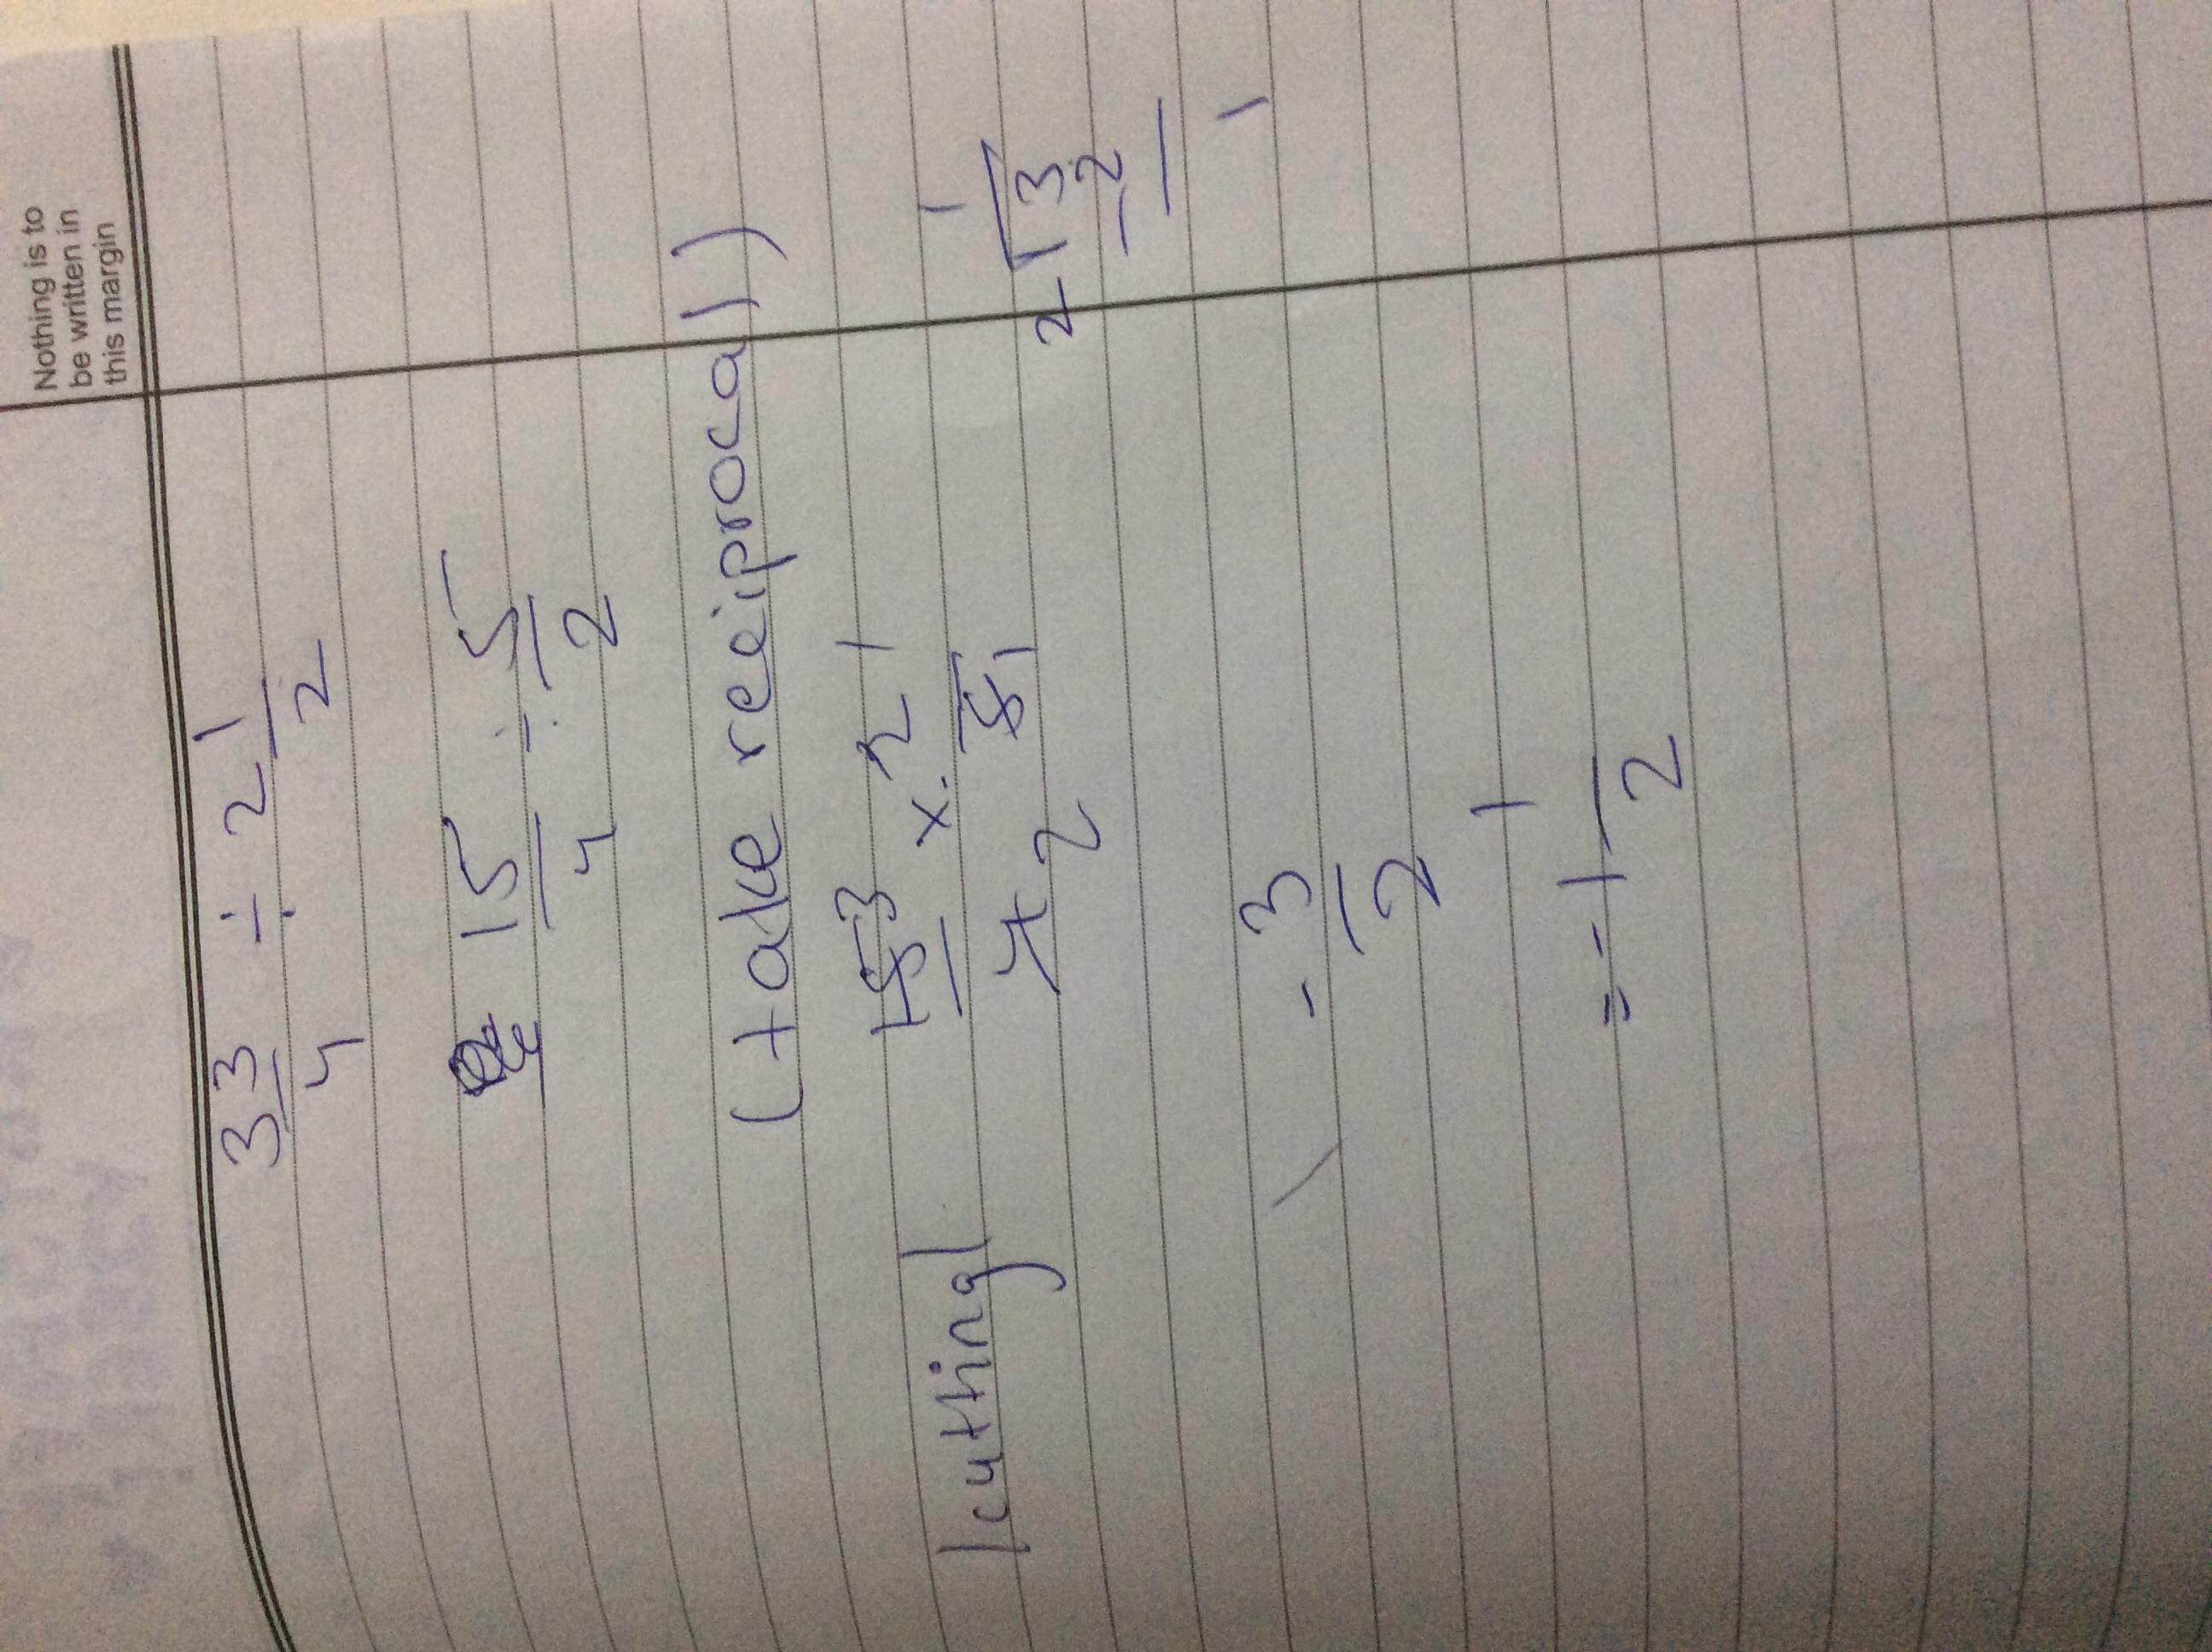 Nothing is to
be written in
this margin
3 3/4 ÷ 2 1/2
15/4 ÷ 5/2
(take reciprocal)
[cutting] 15 3/4 2 × 2 1/5 1
2 √3 1
-2
1
- 3/2
= - 1 1/2